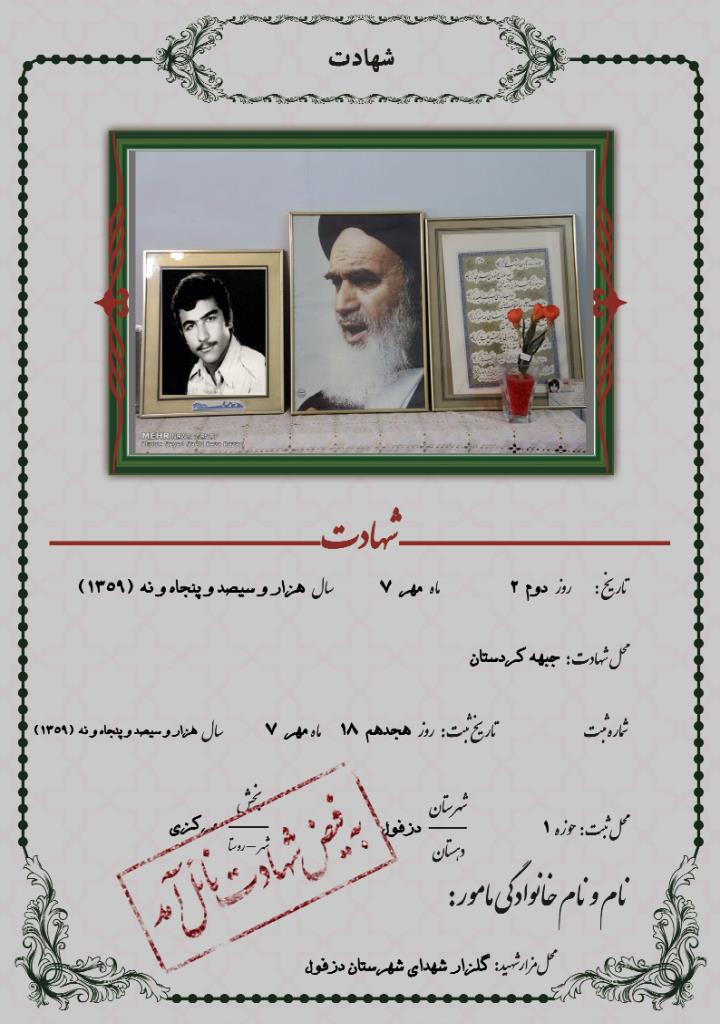 شهادت
MEHR NEWS AGENCY
شهادت
تاریخ: روز دوم ۲ ماه مهر ۷ سال هزار و سیصد و پنجاه و نه (۱۳۵۹)
محل شهادت: جبهه کردستان
شماره ثبت تاریخ ثبت: روز هجدهم ۱۸ ماه مهر ۷ سال هزار و سیصد و پنجاه و نه (۱۳۵۹)
محل ثبت: حوزه ۱ شهرستان دزفول بخش مرکزی
دهستان شهر – روستا
به فیض شهادت نائل آمد
نام و نام خانوادگی مامور:
محل مزار شهید: گلزار شهدای شهرستان دزفول